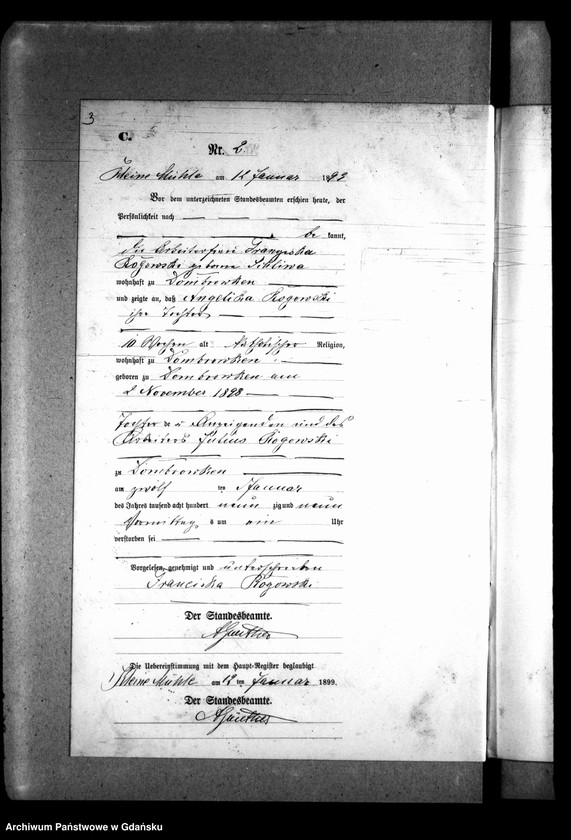 3
C.
Nr. 2.
Kleine Mühle am 12 Januar 1899
Vor dem unterzeichneten Standesbeamten erschien heute, der
Persönlichkeit nach
be kannt,
die Arbeiterfrau Franziska
Rogowski geborene
wohnhaft zu Dombrowken
und zeigte an, daß Angelika Rogowski
ihre Tochter
10 Wochen alt katholischer Religion,
wohnhaft zu Dombrowken
geboren zu Dombrowken am
2 November 1898
Tochter der Anzeigenden und des
Arbeiters Julius Rogowski
zu Dombrowken
am zwölf ten Januar
des Jahres tausend acht hundert neun zig und neun
Vormittags um ein Uhr
verstorben sei
Vorgelesen, genehmigt und unterschrieben
Franciska Rogowski
Der Standesbeamte.
Die Uebereinstimmung mit dem Haupt-Register beglaubigt
Kleine Mühle am 12 ten Januar 1899.
Der Standesbeamte.
Archiwum Państwowe w Gdańsku